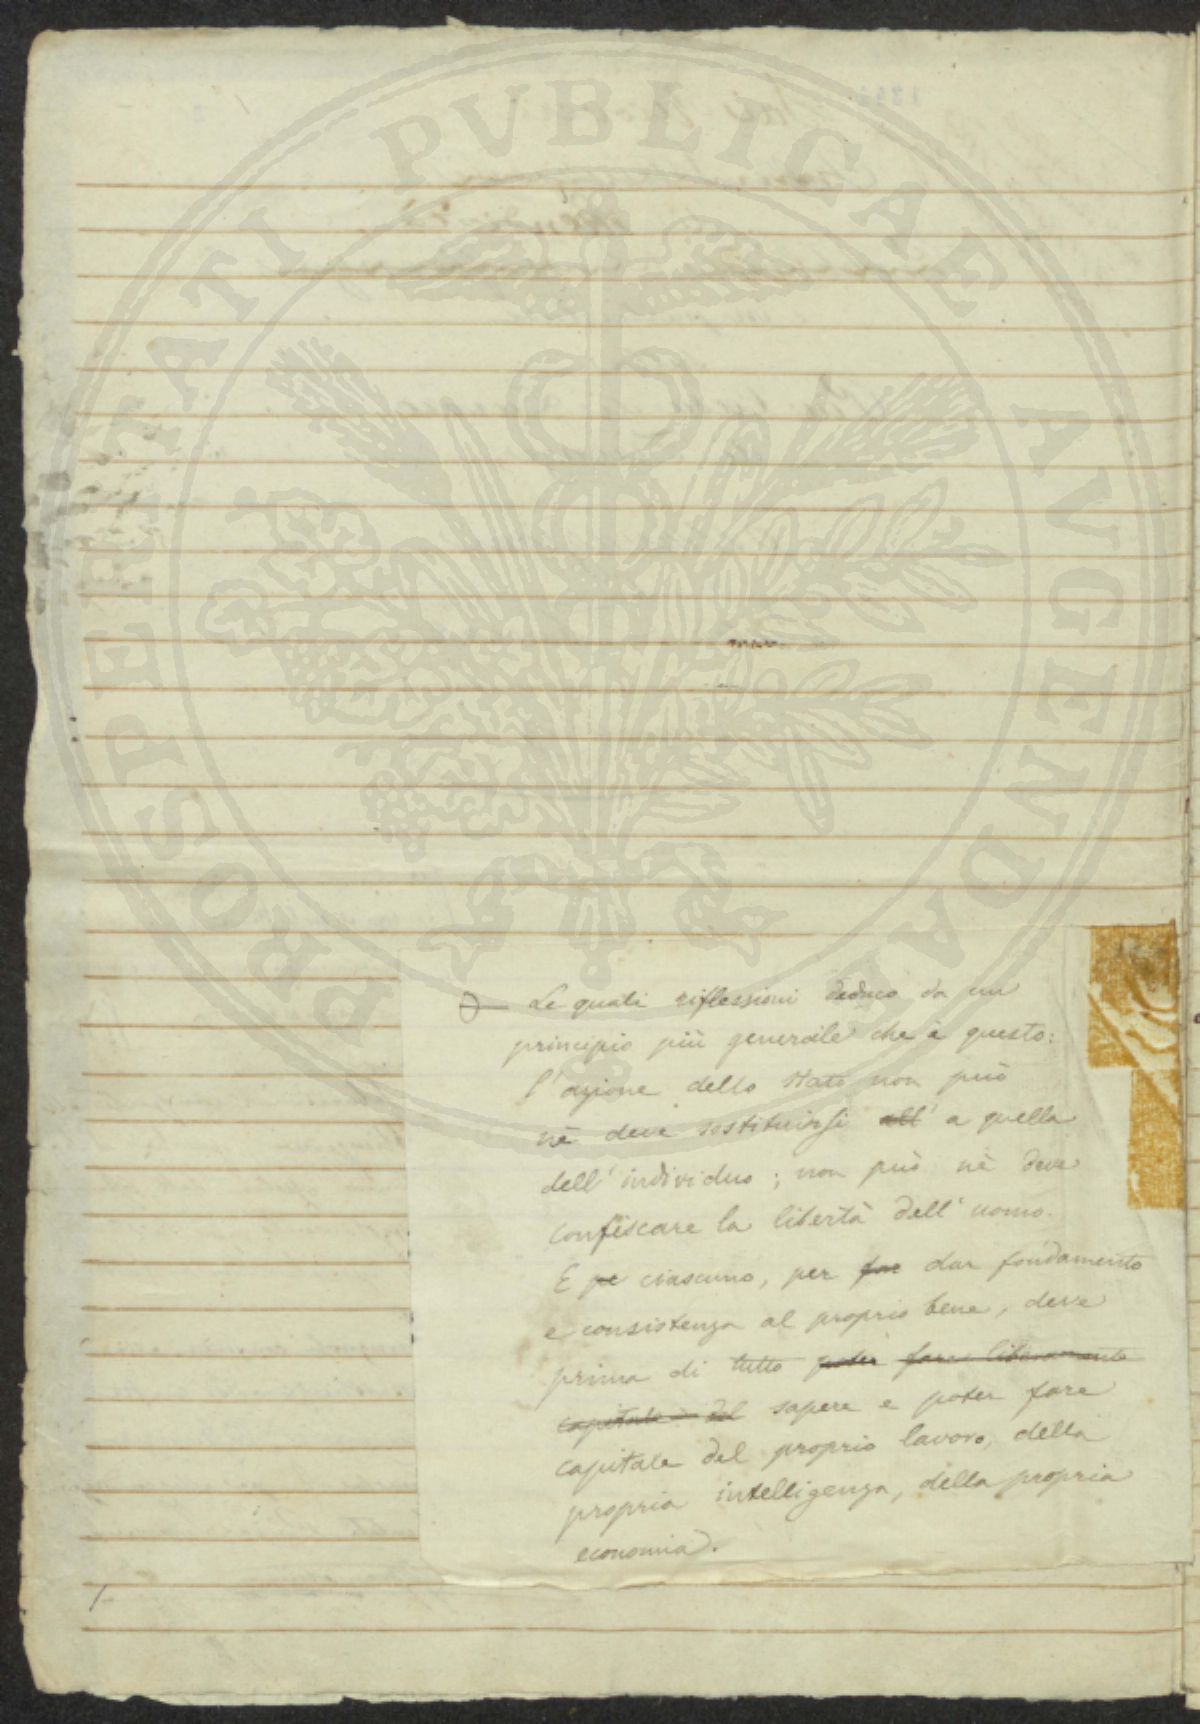 PROSPERITATI PVBLICAE AVGENDAE
Le quali riflessioni deduco da un
principio più generale che è questo:
l'azione dello Stato non può
nè deve sostituirsi all' a quella
dell'individuo; non può nè deve
confiscare la libertà dell'uomo.
E pe ciascuno, per far dar fondamento
e consistenza al proprio bene, deve
prima di tutto poter farne liberamente
capitale del sapere e poter fare
capitale del proprio lavoro, della
propria intelligenza, della propria
economia.